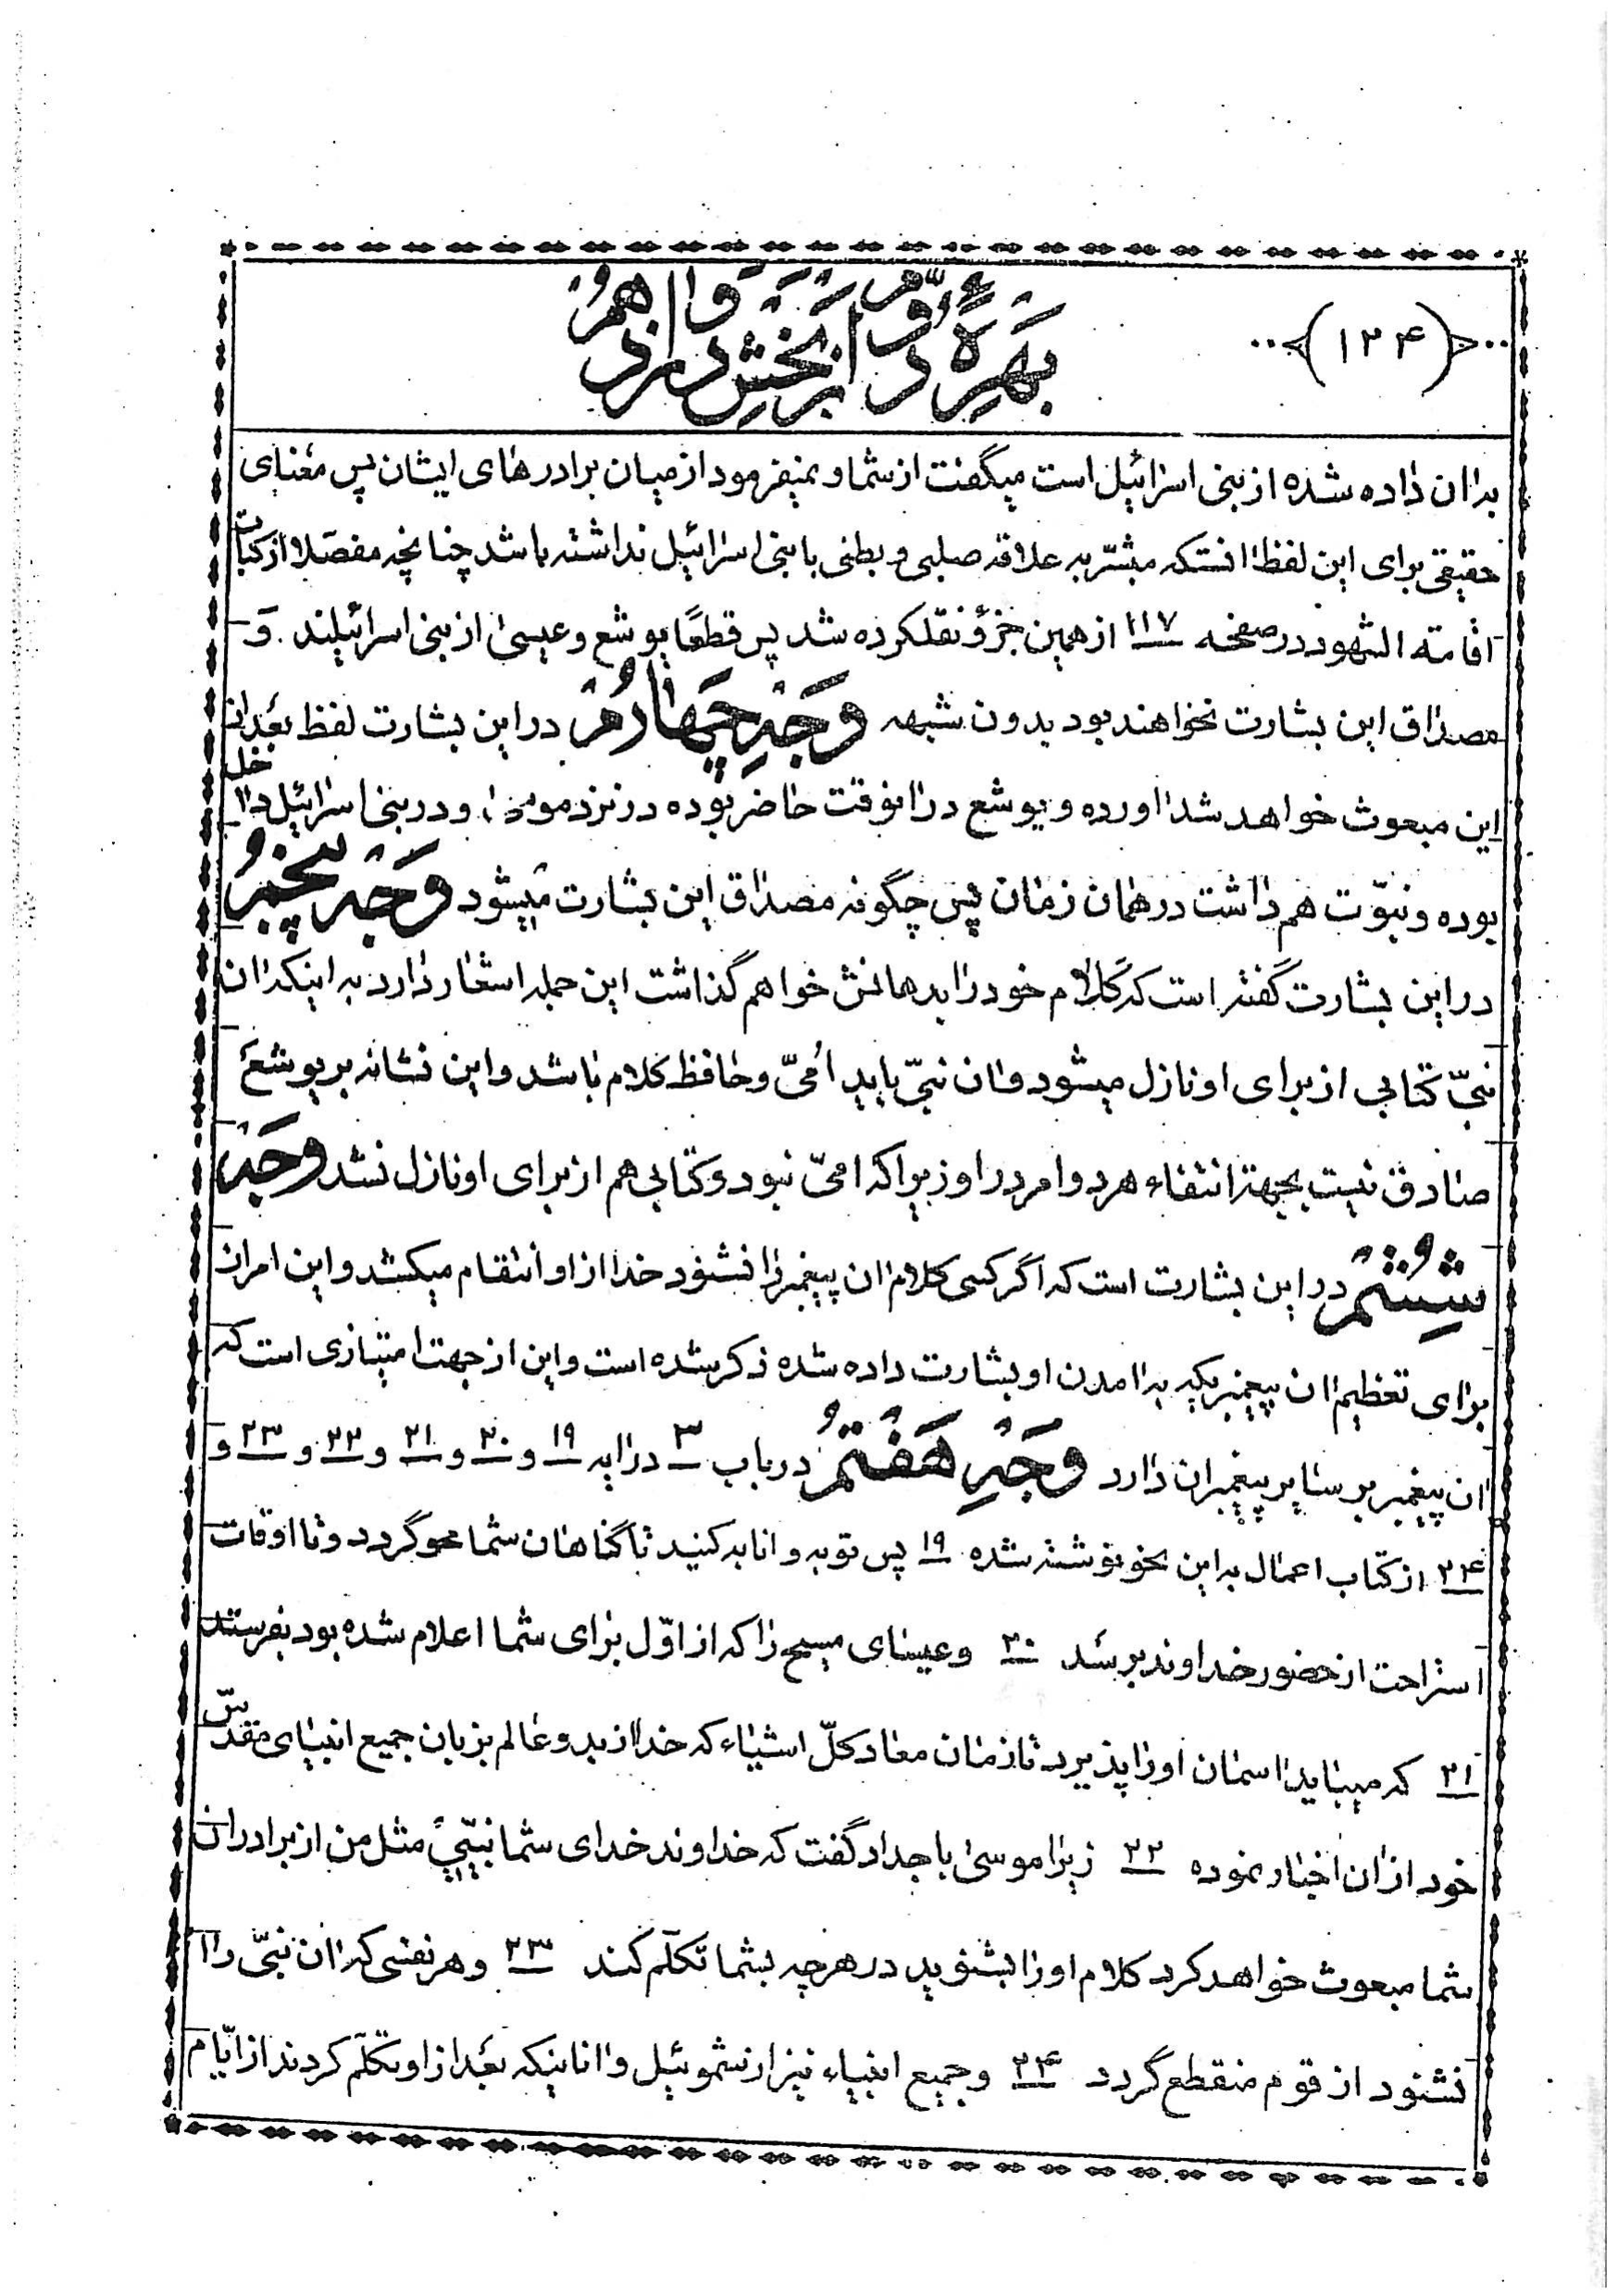 (۱۲۴)
بهرهٔ دوّم از بخش دوازدهم
بدان داده شده از بنی اسرائیل است میگفت از شما و نمیفرمود از میان برادرهای ایشان پس معنای
حقیقی برای این لفظ انستکه مبشّر به علاقه صلبی و بطنی با بنی اسرائیل نداشته باشد چنانچه مفصّلا از کتاب
اقامته الشهود در صفحه ۱۱۷ از همین جزؤ نقلکرده شد پس قطعًا یوشع و عیسیٰ از بنی اسرائیلند . وَ
مصداق این بشارت نخواهند بود بدون شبهه وَجهِ چَهارُم در این بشارت لفظ بعد از
این مبعوث خواهد شد اورده و یوشع در انوقت حاضر بوده در نزد موسی و در بنی اسرائیل داخل
بوده و نبوّت هم داشت در همان زمان پس چگونه مصداق این بشارت میشود وَجهِ پنجُم
در این بشارت گفته است که کلام خود را بدهانش خواهم گذاشت این جمله اشعار دارد به اینکه ان
نبیّ کتابی از برای او نازل میشود و ان نبیّ باید اُمّیّ و حافظ کلام باشد و این نشانه بر یوشع
صادق نیست بجهة انتفاء هر دو امر در او زیرا که امّیّ نبود و کتابی هم از برای او نازل نشد وجه
شِشُم در این بشارت است که اگر کسی کلام ان پیغمبر را نشنود خدا از او انتقام میکشد و این امر از
برای تعظیم ان پیغمبریکه به امدن او بشارت داده شده ذکر شده است و این از جهت امتیازی است که
ان پیغمبر بر سایر پیغمبران دارد وَجهِ هَفتُم در باب ۳ در ایه ۱۹ و ۲۰ و ۲۱ و ۲۲ و ۲۳ و
۲۴ از کتاب اعمال به این نحو نوشته شده ۱۹ پس توبه و انابه کنید تا گناهان شما محو گردد و تا اوقات
استراحت از حضور خداوند برسد ۲۰ و عیسای مسیح را که از اوّل برای شما اعلام شده بود بفرستد
۲۱ که میباید اسمان او را پذیرد تا زمان معاد کلّ اشیاء که خدا از بدو عالم بزبان جمیع انبیای مقدّس
خود از ان اخبار نموده ۲۲ زیرا موسیٰ باجداد گفت که خداوند خدای شما نبیّیٔ مثل من از برادران
شما مبعوث خواهد کرد کلام او را بشنوید در هرچه بشما تکلّم کند ۲۳ و هر نفسی که ان نبیّ را
نشنود از قوم منقطع گردد ۲۴ و جمیع انبیاء نیز از شموئیل و انانیکه بعد از او تکلّم کردند از ایّام